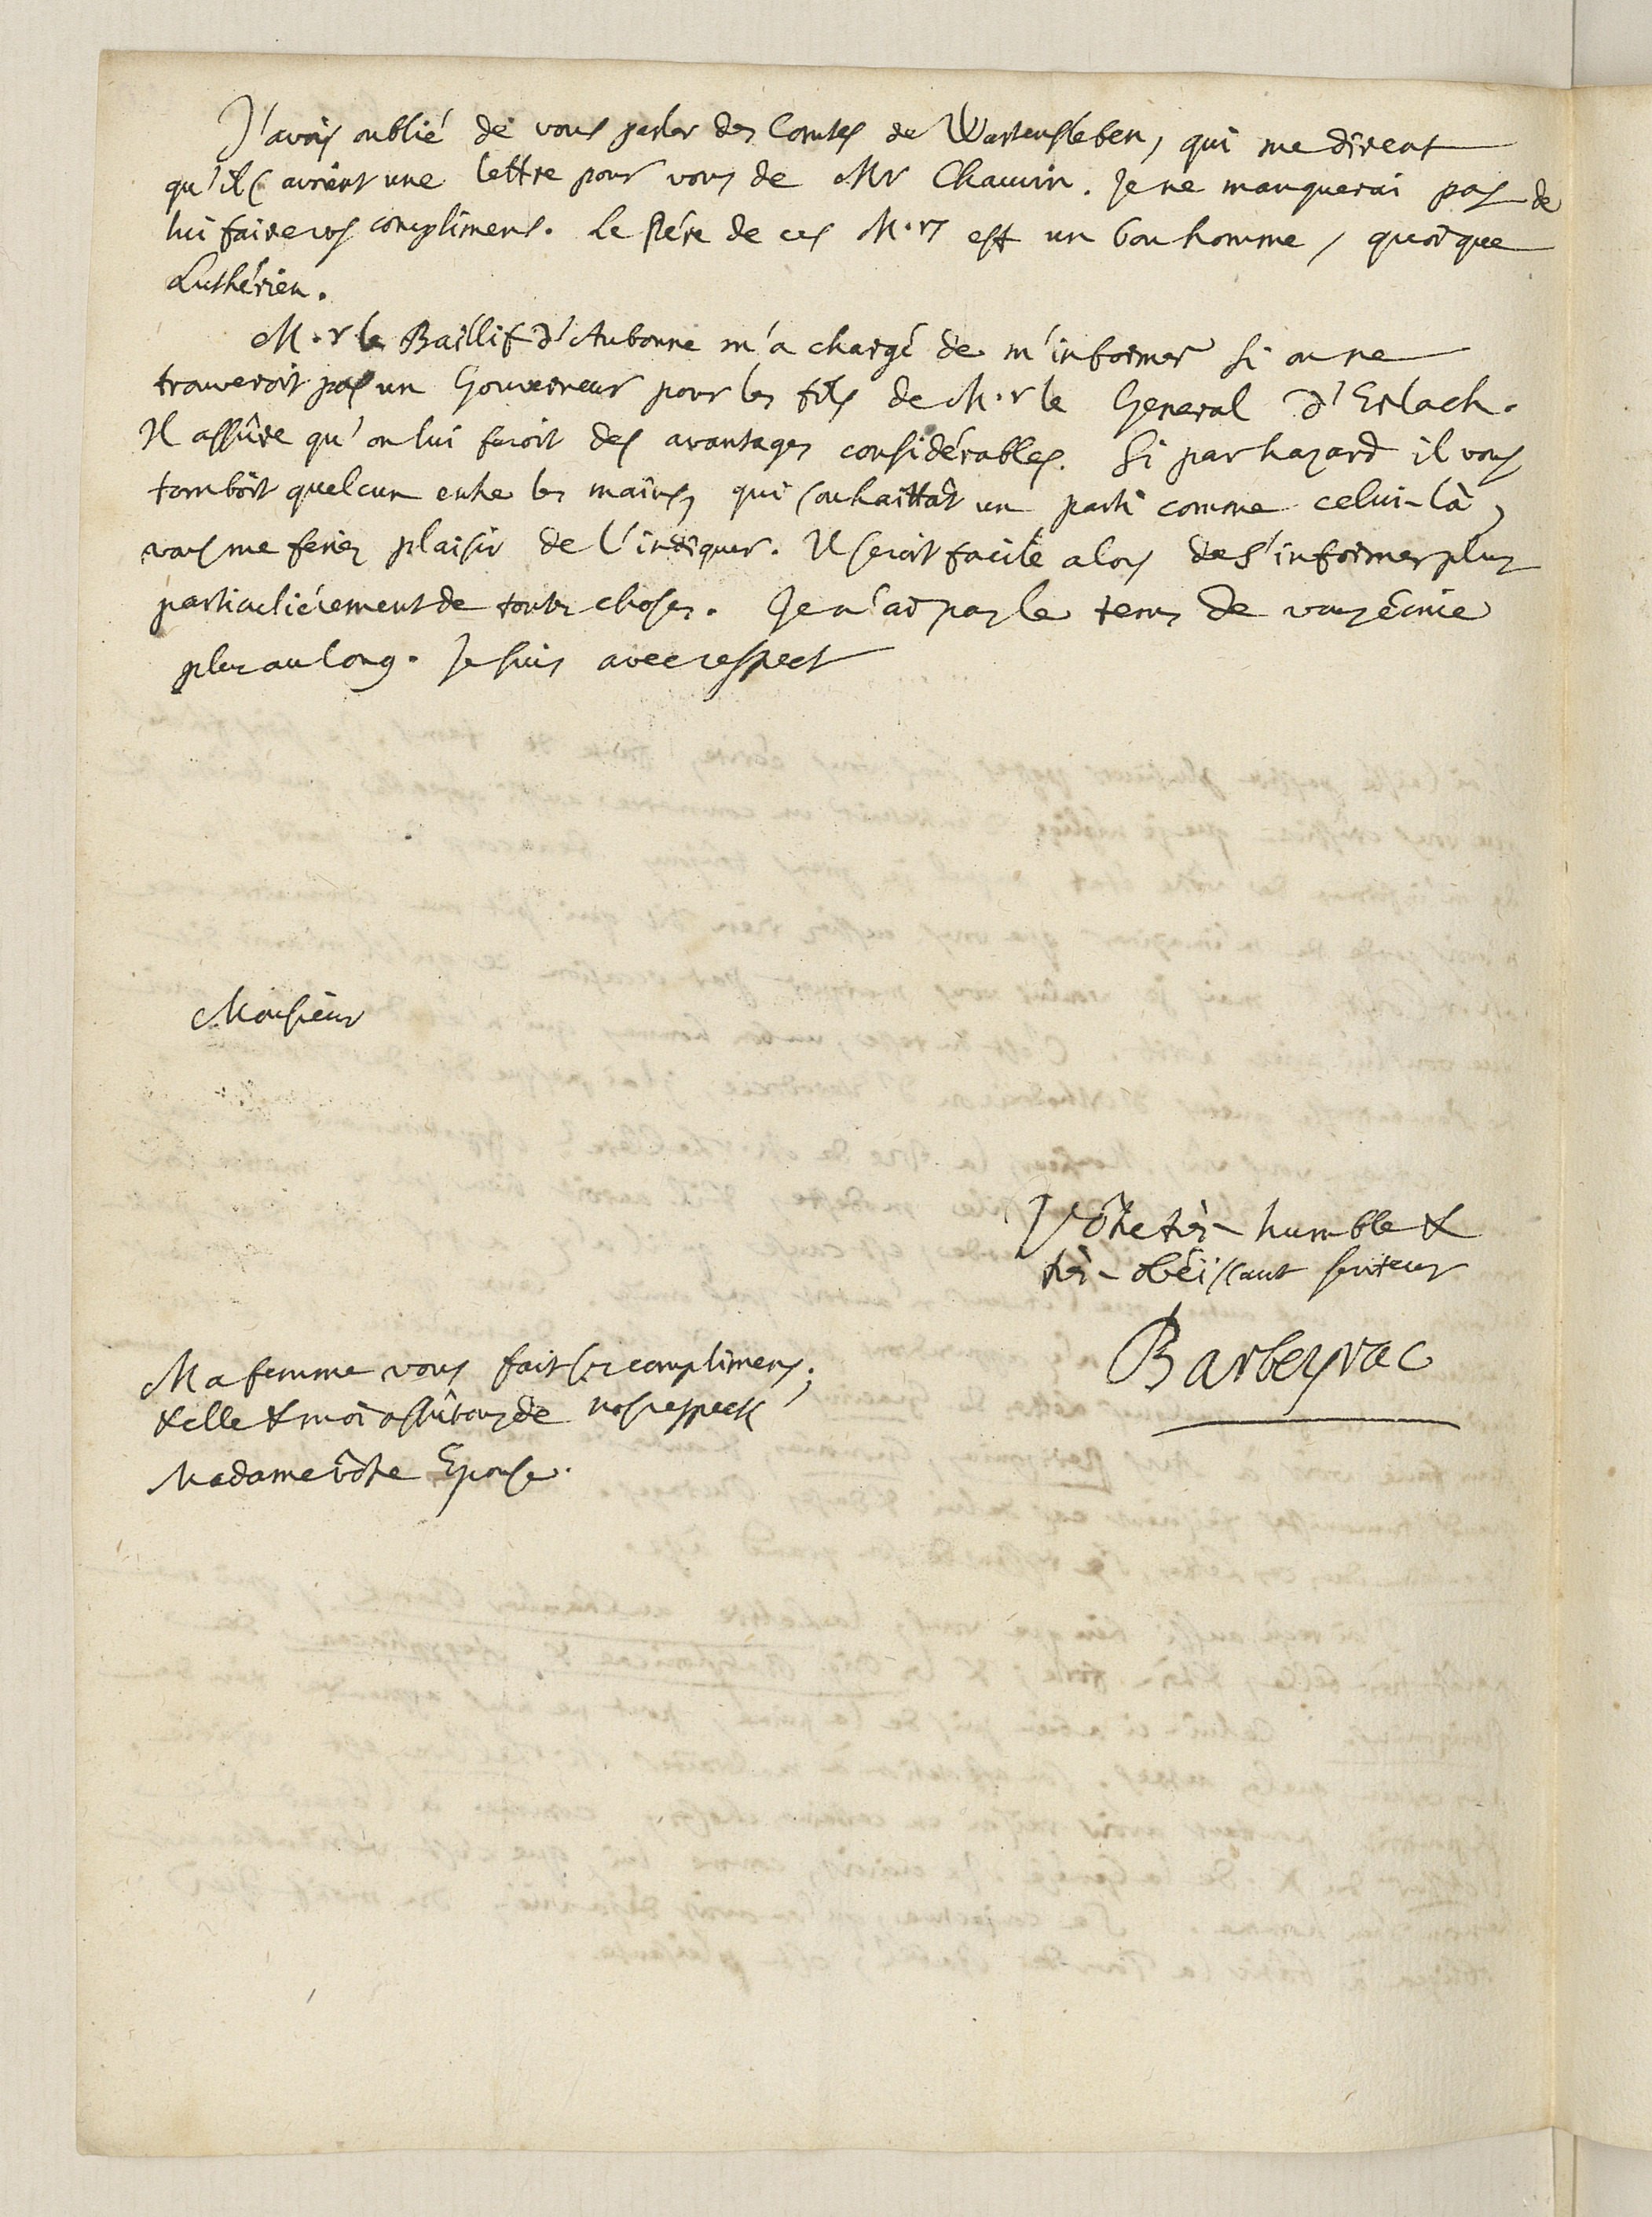 J'avois oublié de vous parler des Comtes de Wartensleben, qui me dirent
qu'ils avoient une lettre pour vous de Mr Chauvin. Je ne manquerai pas de
lui faire vos complimens. Le Pére de ces M.rs est un bon homme, quoique
Luthérien.
M.r le Baillif d'Aubonne m'a chargé de m'informer si on ne
trouveroit pas un Gouverneur pour les fils de M.r le General d'Erlach.
Il assûre qu'on lui feroit des avantages considérables. Si par hazard il vous
tomboit quelcun entre les mains, qui souhaittât un parti comme celui-là,
vous me feriez plaisir de l'indiquer. Il seroit facile alors de s'informer plus
particuliérement de toutes choses. Je n'ai pas le tems de vous écrire
plus au long. Je suis avec respect
Monsieur
Vôtre très-humble &
très-obéissant serviteur
Barbeyrac
Ma femme vous fait ses complimens;
& elle & moi assûrons de nos respects
Madame vôtre Epouse.